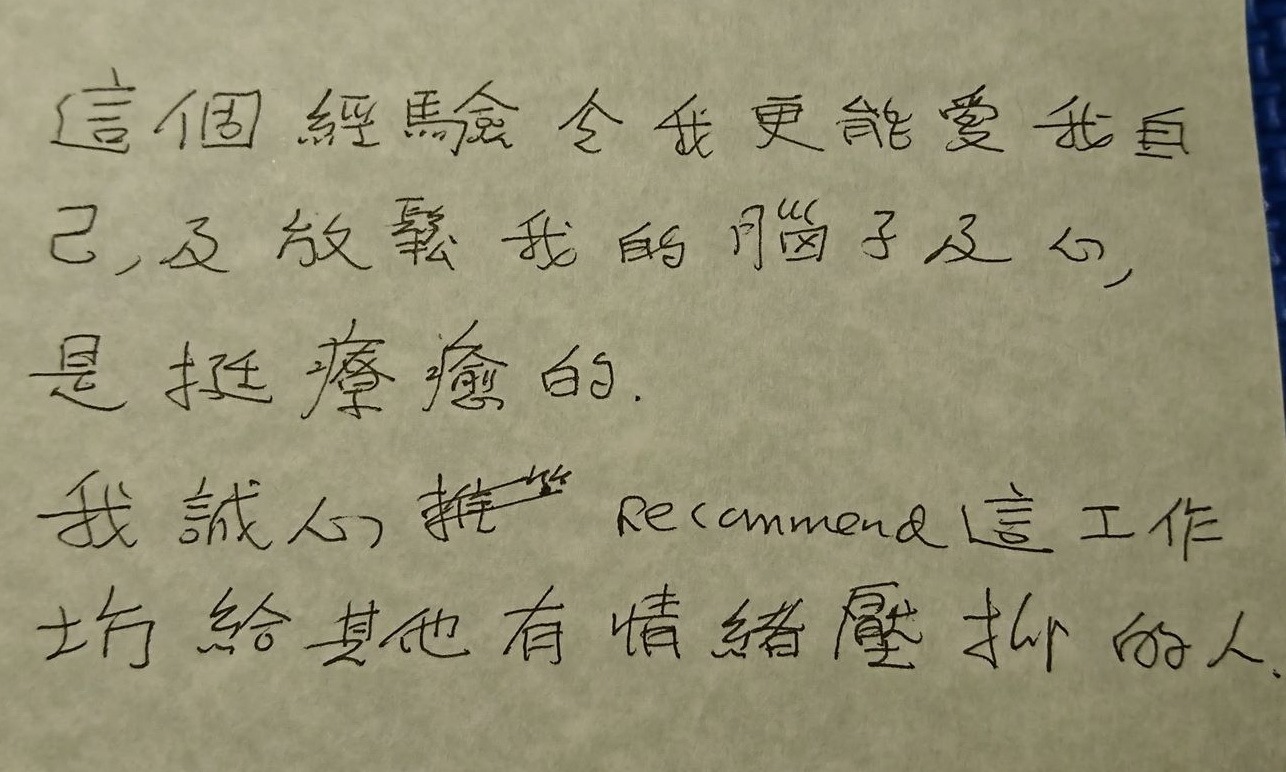 這個經驗令我更能愛我自
己,及放鬆我的腦子及心,
是挺療癒的.
我誠心 Recommend 這工作
坊給其他有情緒壓抑的人.